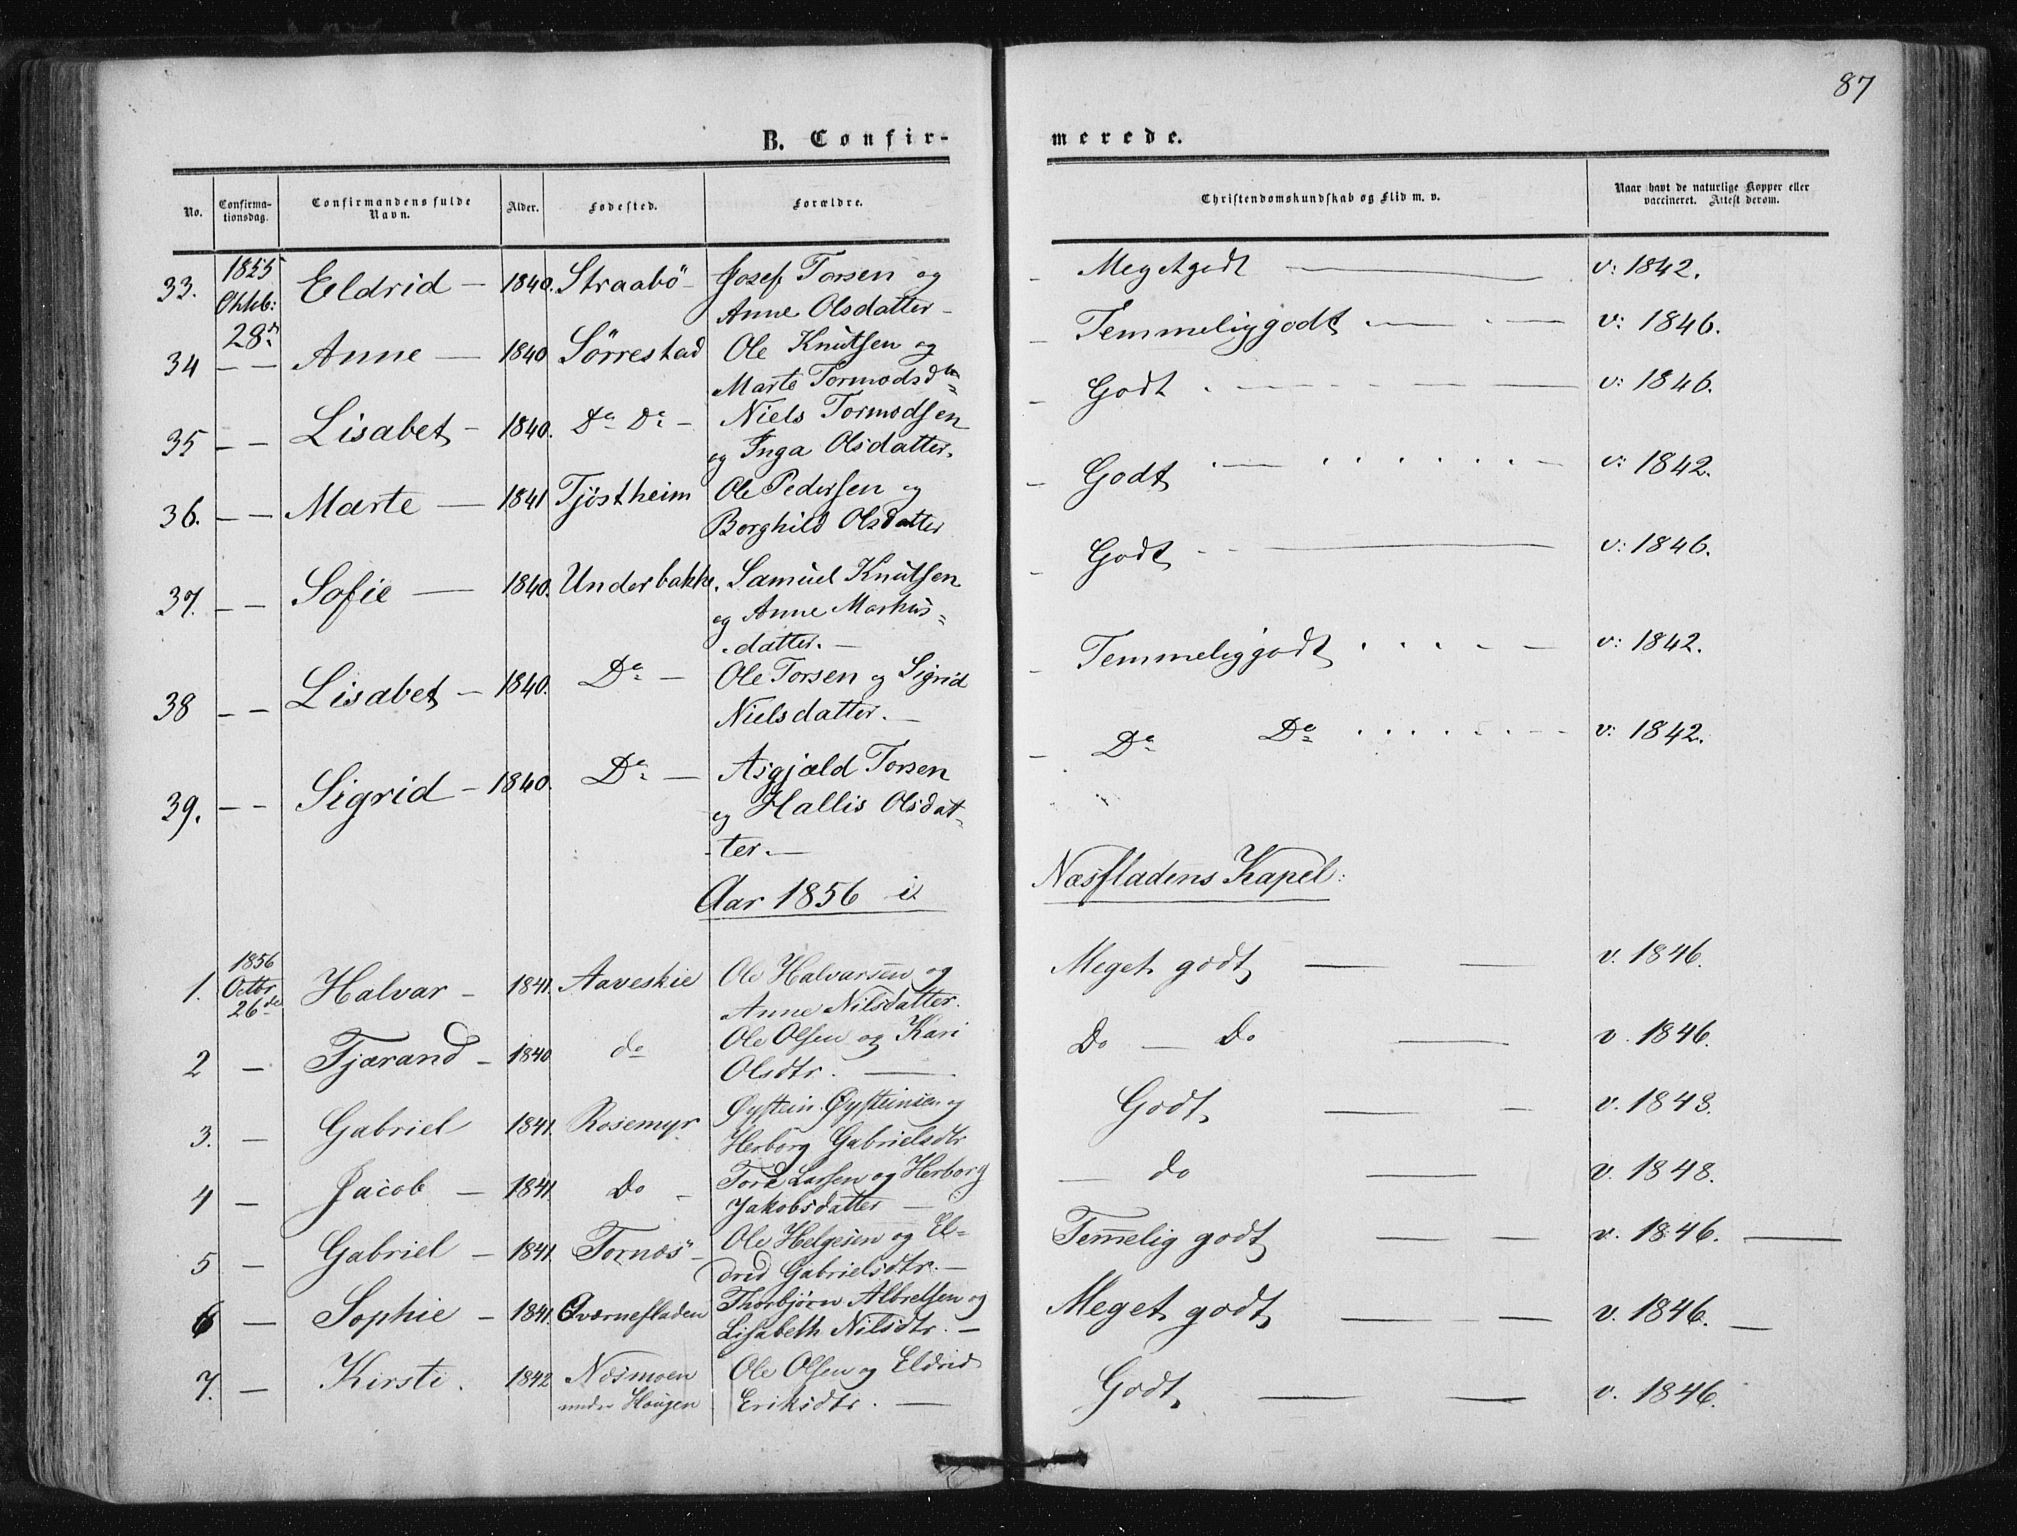 87
B. Confir-
merede.
No.
Confirma-
tionsdag.
Confirmandens fulde
Navn.
Alder.
Fødested.
Forældre.
Christendomskundskab og Flid m. v.
Naar havt de naturlige Kopper eller
vaccineret. Attest derom.
33. 1855 Oktob: 28de Eldrid — 1840. Straabö - Josef Torsen og
Anne Olsdatter -
- Meget godt — v: 1842.
34 — — Anne — 1840 Sörrestad Ole Knutsen og
Marte Tormodsd
- Temmelig godt — v: 1846.
35 — — Lisabet - 1840. Do Do - Niels Tormodsen
og Inga Olsdatter.
- Godt — v: 1846.
36. — — Marte — 1841 Tjöstheim Ole Pedersen og
Borghild Olsdatter
- Godt — v: 1842.
37. — — Sofie — 1840. Underbakke. Samuel Knutsen
og Anne Markus=
datter. —
- Godt — v: 1846.
38 — — Lisabet - 1840. Do — Ole Torsen og Sigrid
Nielsdatter. —
- Temmelig godt — v: 1842.
39. — — Sigrid - 1840. Do — Asgjæld Torsen
og Hallis Olsdat-
ter. —
- Do Do — v: 1842.
Aar 1856 i Næsfladens Kapel:
1. 1856 Octbr 26de Halvar - 1841. Aaveskie Ole Halvarsen og
Anne Nilsdatter.
Meget godt — v. 1846.
2 — Tjærand - 1840 do Ole Olsen og Kari
Olsdtr. —
Do — Do — v. 1846.
3. — Gabriel 1841. Rosemyr Øystein Øysteinsen og
Herborg Gabrielsdtr
Godt — v. 1848.
4 — Jacob — 1841 Do - Tore Larsen og Herborg
Jakobsdatter —
— do — v. 1848.
5 — Gabriel — 1841. Tornæs - Ole Helgesen og El-
drid Gabrielsdtr. —
Temmelig godt — v. 1846. —
6 — Sophie - 1841. Qværnefladen Thorbjørn Albretsen og
Lisabeth Nilsdtr. —
Meget godt — v. 1846. —
7. — Kirsti. 1842 Næsmoen Ole Olsen og Eldrid
under Haugen Eriksdtr. —
Godt — v. 1846.